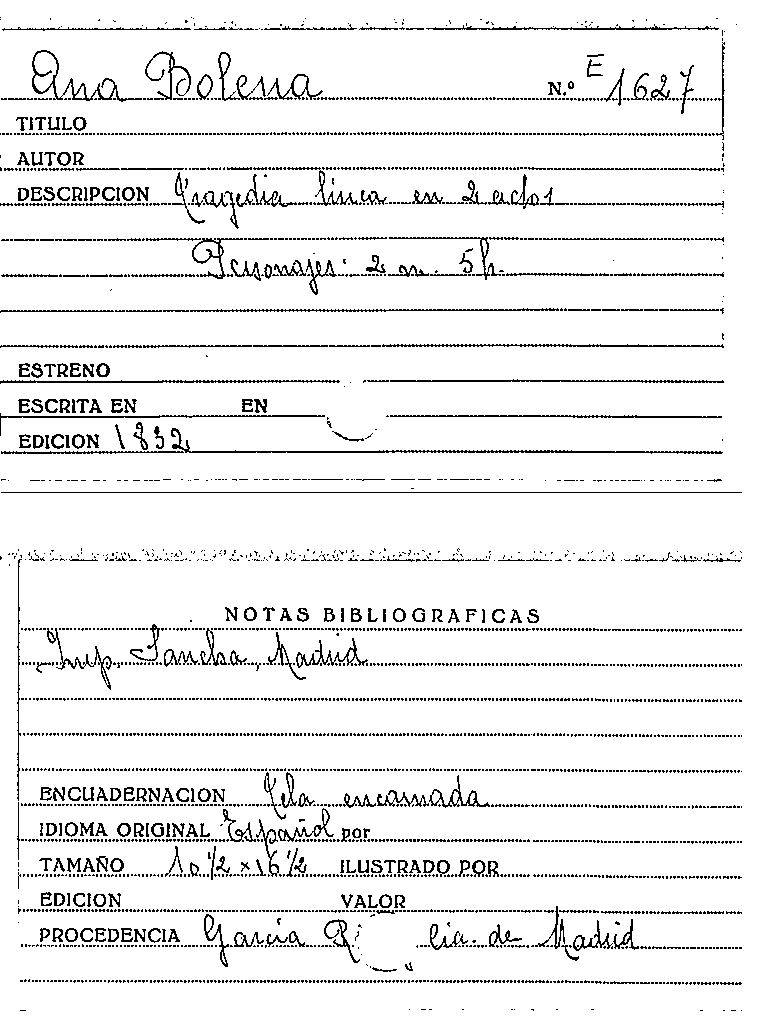 Ana Bolena N.º E 1627
TITULO
AUTOR
DESCRIPCION Tragedia lírica en 2 actos
Personajes: 2 m. 5h.
ESTRENO
ESCRITA EN EN
EDICION 1832
NOTAS BIBLIOGRAFICAS
Imp. Sancha, Madrid
ENCUADERNACION Tela encarnada
IDIOMA ORIGINAL Español por
TAMAÑO 10 1/2 x 16 1/2 ILUSTRADO POR
EDICION VALOR
PROCEDENCIA García lia. de Madrid